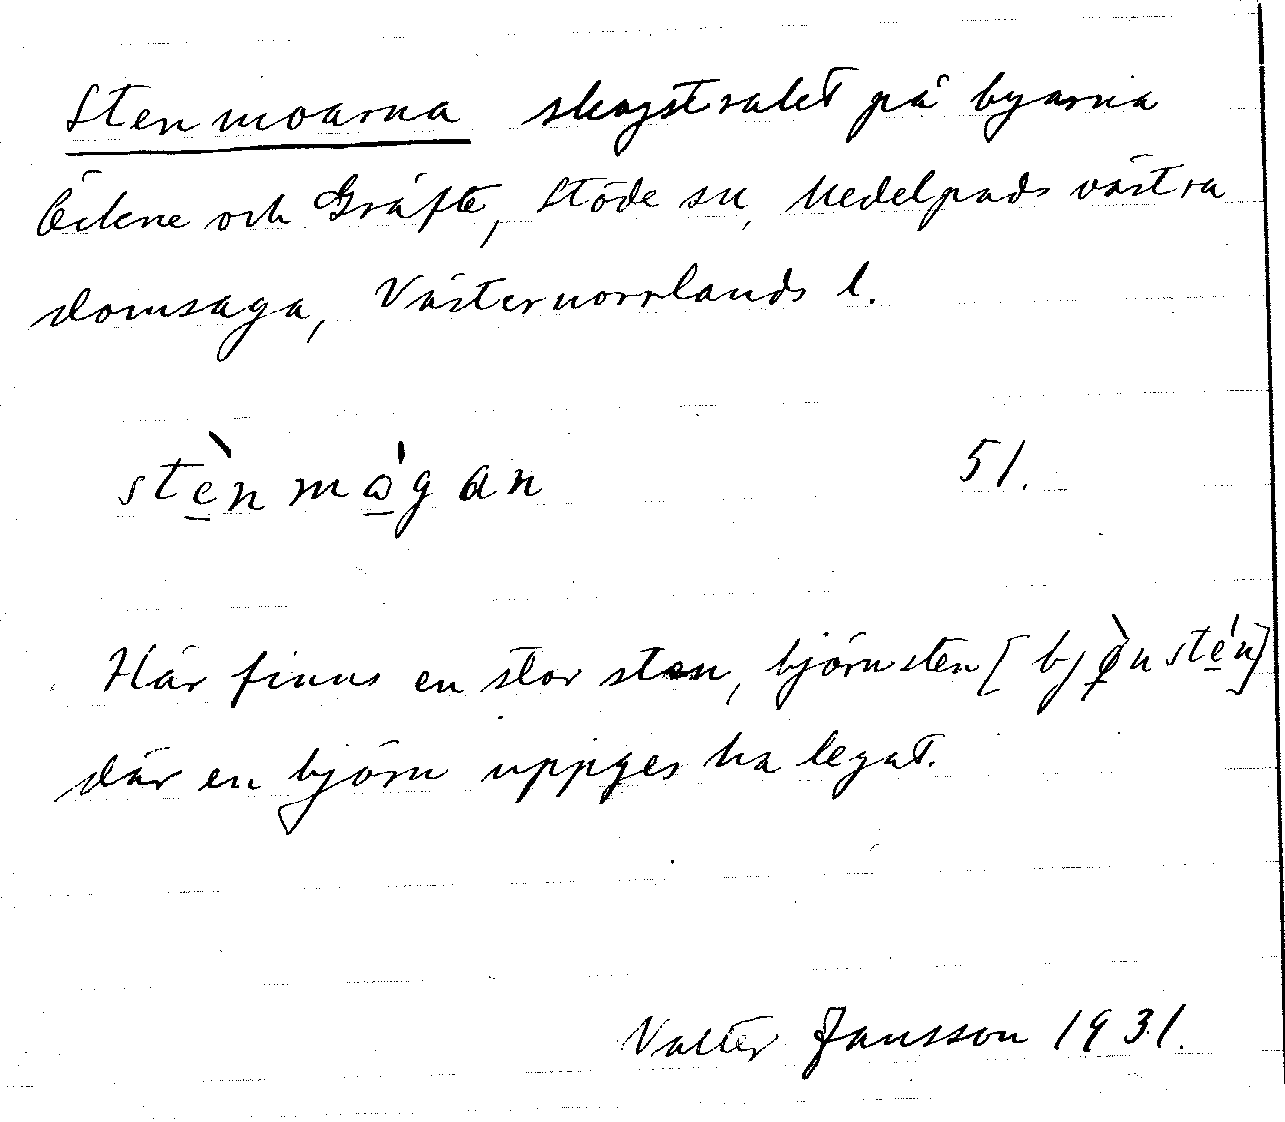 Stenmoarna skogstrakt på byarna
Öckne och Gräfte, Stöde sn, Medelpads västra
domsaga, Västernorrlands l.
stènmǻgan 51.
Här finns en stor sten, björnsten [bjø̀nsté̱n]
där en björn uppges ha legat.
Valter Jansson 1931.